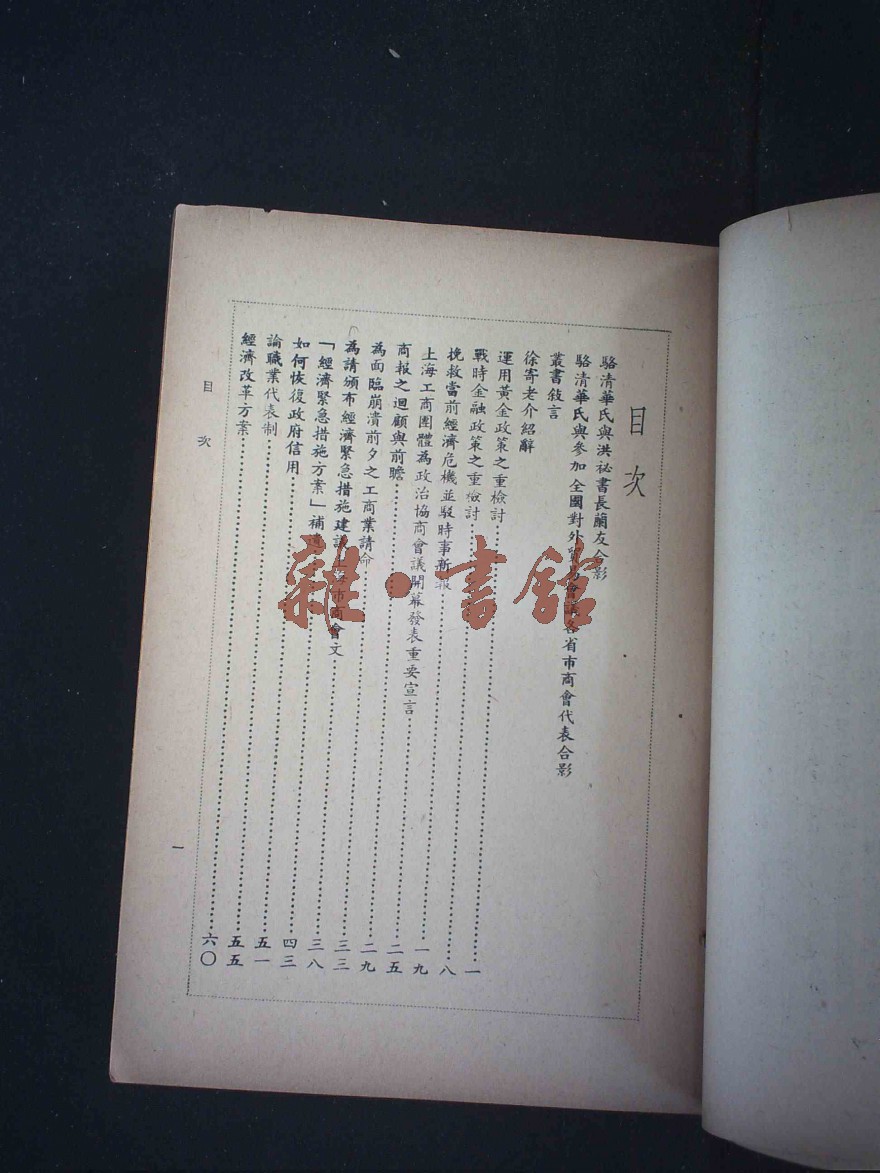 目次
駱清華氏與洪祕書長蘭友合影
駱清華氏與參加全國對外貿易會議各省市商會代表合影
叢書敍言
徐寄老介紹辭
運用黃金政策之重檢討……一
戰時金融政策之重檢討……八
挽救當前經濟危機並駁時事新報……一九
上海工商團體為政治協商會議開幕發表重要宣言……二五
商報之迴顧與前瞻……二九
為面臨崩潰前夕之工商業請命……三三
為請頒布經濟緊急措施建議上海市商會文……三八
「經濟緊急措施方案」補遺……四三
如何恢復政府信用……五一
論職業代表制……五五
經濟改革方案……六〇
目次
一
雜·書館